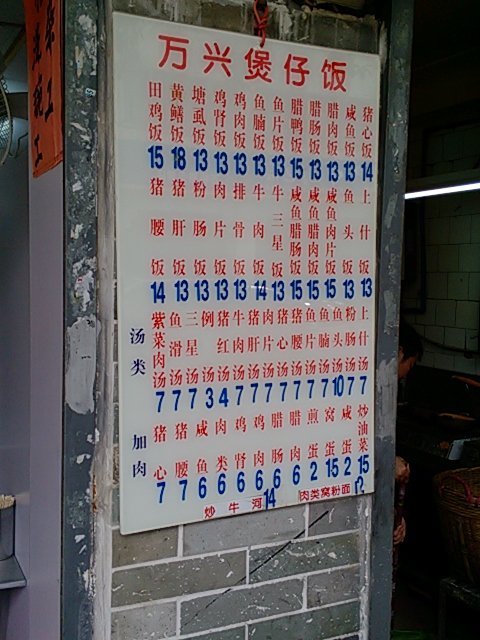 万兴煲仔饭
田鸡饭 15
黄鳝饭 18
塘虱饭 13
鸡肾饭 13
鸡肉饭 13
鱼腩饭 13
鱼片饭 13
腊鸭饭 15
腊肠饭 13
腊肉饭 13
咸鱼饭 13
猪心饭 14
猪腰饭 14
猪肝饭 13
粉肠饭 13
肉片饭 13
排骨饭 13
牛肉饭 14
牛三星饭 13
咸鱼腊肠饭 15
咸鱼腊肉饭 15
咸鱼肉片饭 15
鱼头饭 13
上什饭 13
汤类
紫菜肉汤 7
鱼滑汤 7
三星汤 7
例汤 3
猪红汤 4
牛肉汤 7
猪肝汤 7
肉片汤 7
猪心汤 7
猪腰汤 7
鱼片汤 7
鱼腩汤 7
鱼头汤 10
粉肠汤 7
上什汤 7
加肉
猪心 7
猪腰 7
咸鱼 6
肉类 6
鸡肾 6
鸡肉 6
腊肠 6
腊肉 6
煎蛋 2
窝蛋 15
咸蛋 2
炒油菜 15
炒牛河 14
肉类窝粉面 12